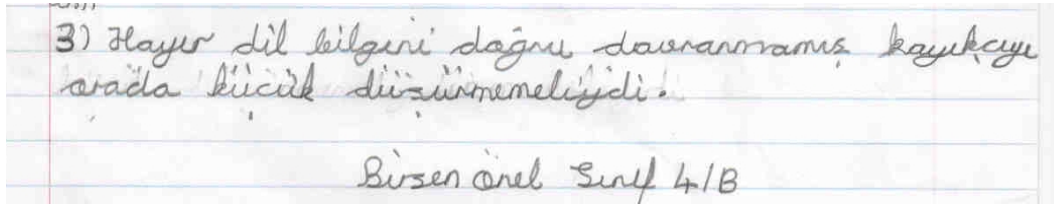 3) Hayır dil bilgini doğru davranmamış kayıkçıyı
orada küçük düşürmemeliydi.
Birsen önel Sınıf 4/B